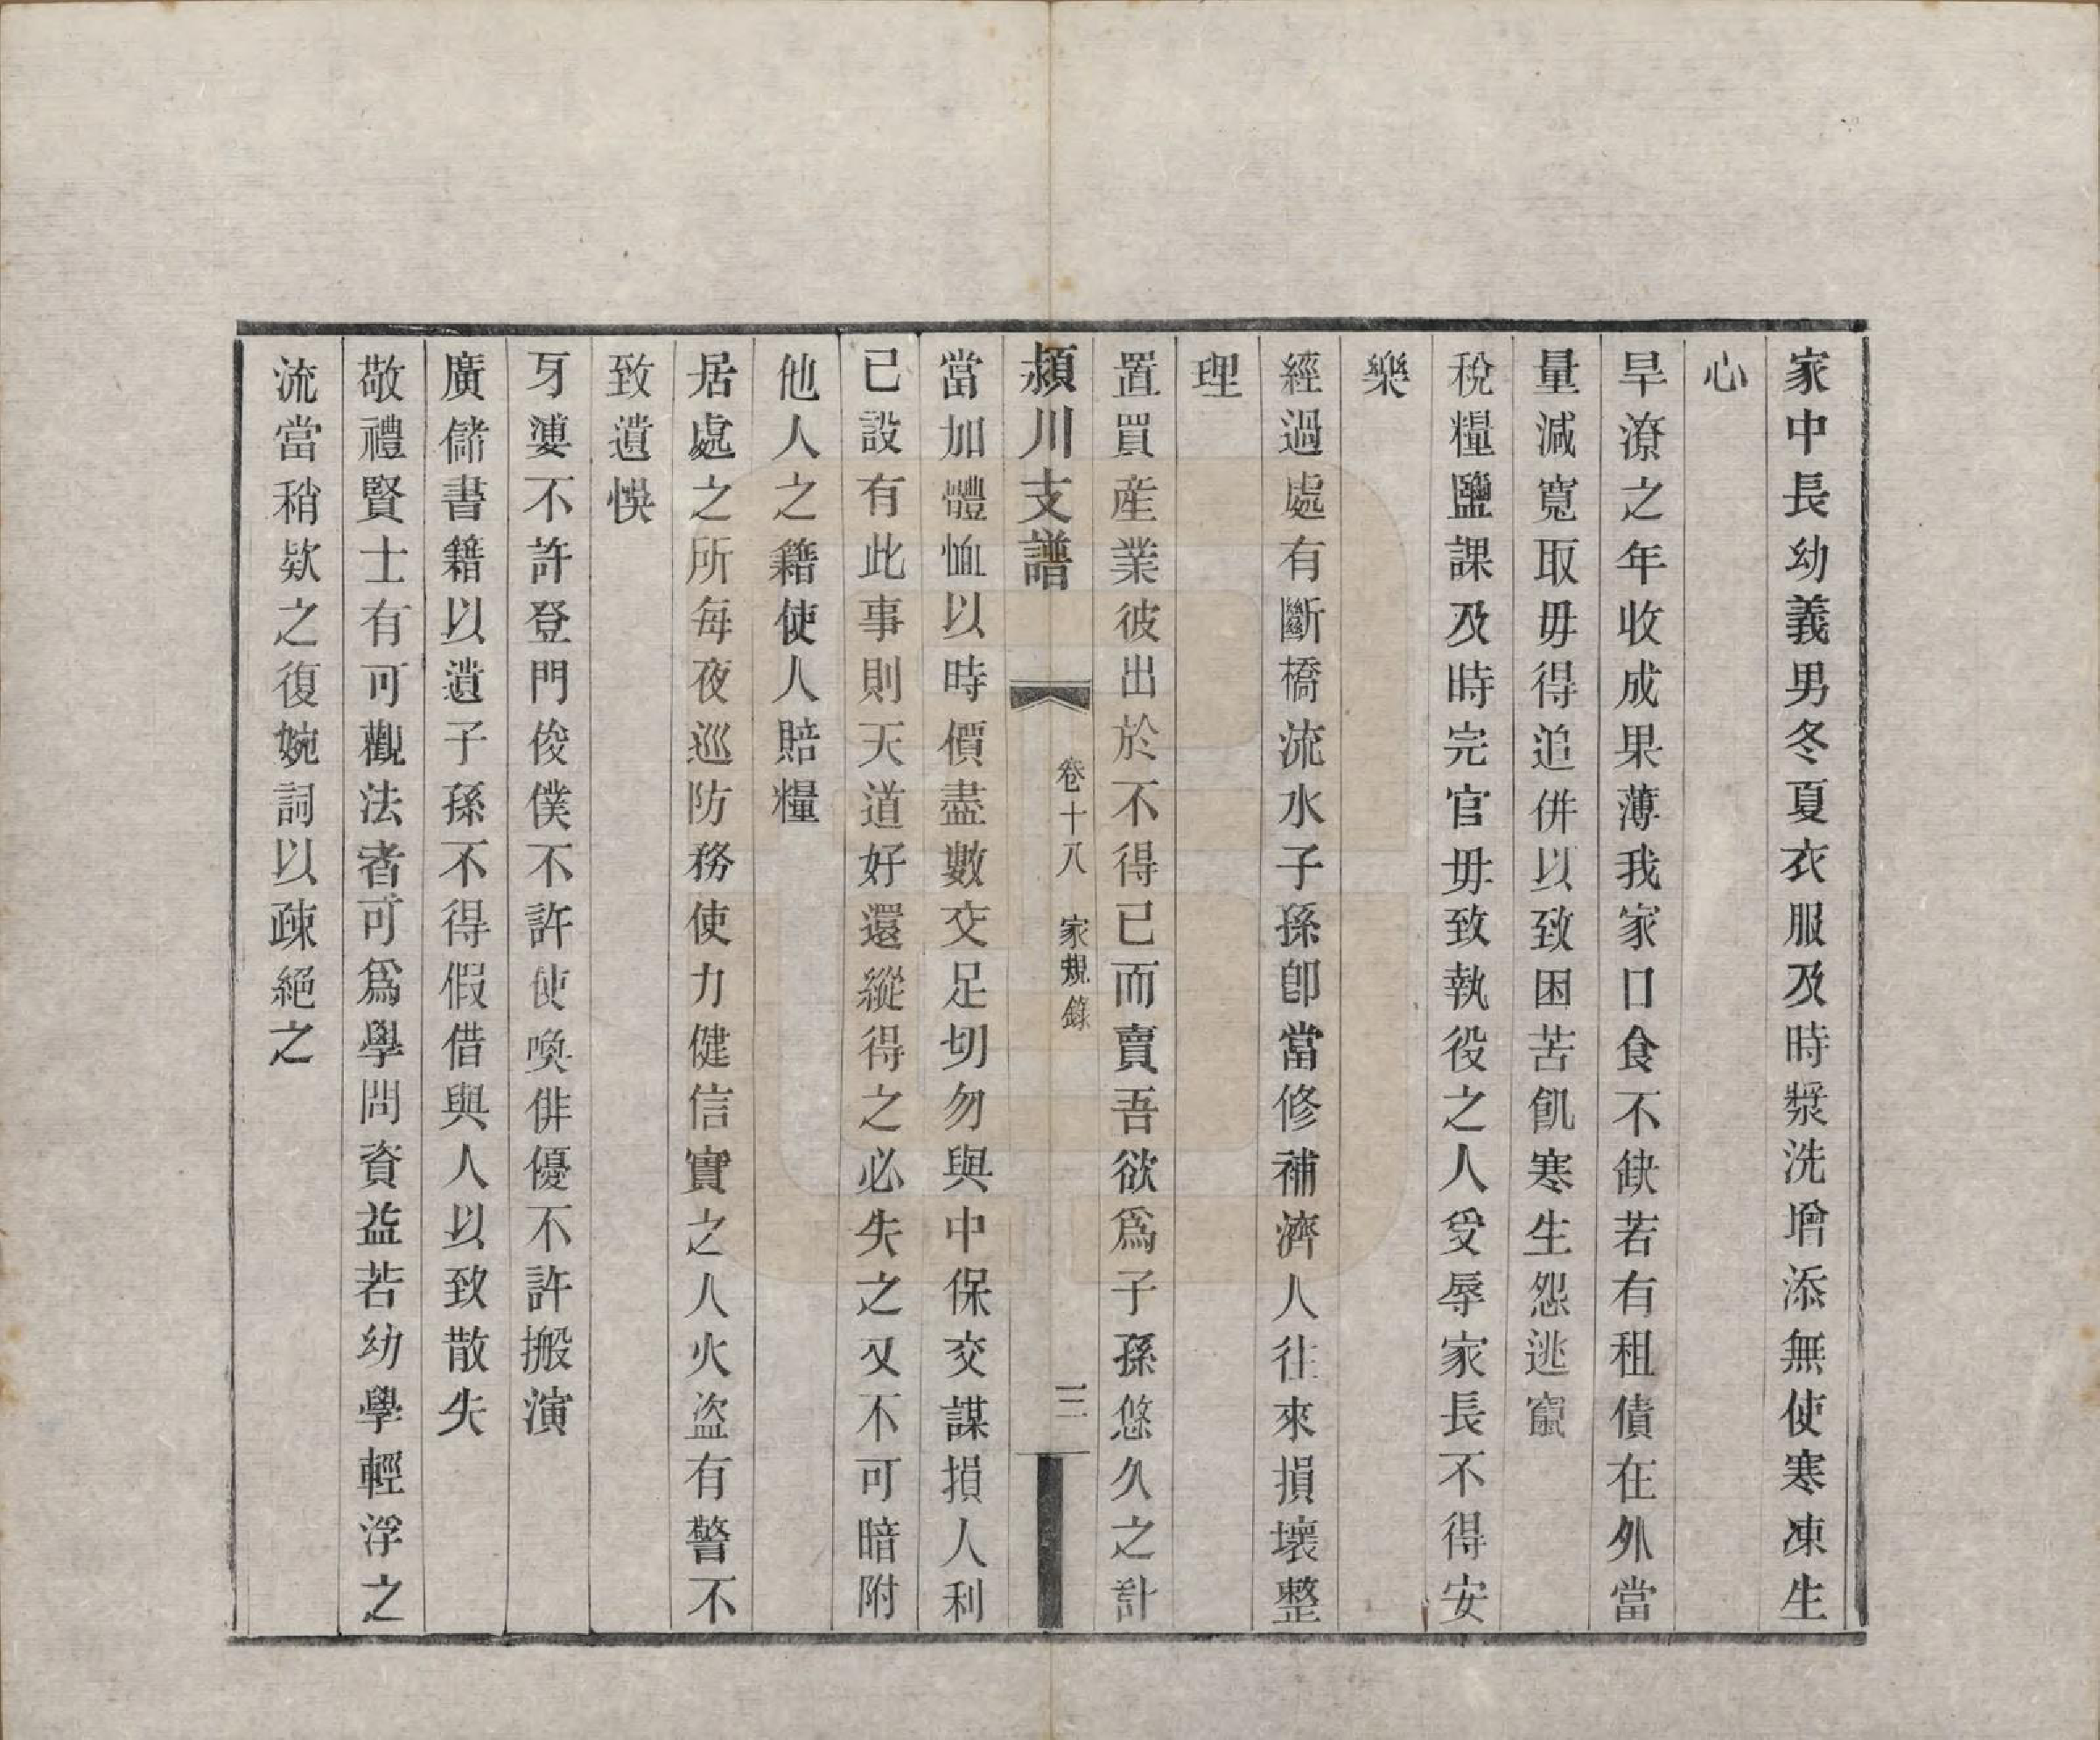 家中長幼義男冬夏衣服及時漿洗增添無使寒凍生
心
旱潦之年收成果薄我家口食不缺若有租債在外當
量減寬取毋得追併以致困苦飢寒生怨逃竄
稅糧鹽課及時完官毋致執役之人受辱家長不得安
樂
經過處有斷橋流水子孫卽當修補濟人往來損壞整
理
置買產業彼出於不得已而賣吾欲爲子孫悠久之計
潁川支譜
卷十八 家規錄
三
當加體恤以時價盡數交足切勿與中保交謀損人利
已設有此事則天道好還縱得之必失之又不可暗附
他人之籍使人賠糧
居處之所每夜巡防務使力健信實之人火盜有警不
致遺悞
牙婆不許登門俊僕不許使喚俳優不許搬演
廣儲書籍以遺子孫不得假借與人以致散失
敬禮賢士有可觀法者可爲學問資益若幼學輕浮之
流當稍欵之復婉詞以疎絕之